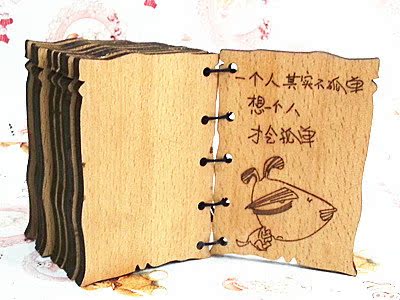 一个人其实不孤单
想一个人
才会孤单